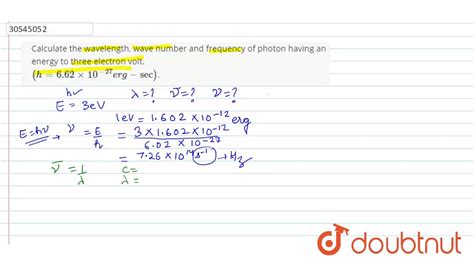 30545052
Calculate the wavelength, wave number and frequency of photon having an
energy to three electron volt.
(h = 6.62 × 10⁻²⁷ erg − sec).
hν λ = ? ν̅ = ? ν = ?
E = 3eV
1eV = 1.602 × 10⁻¹² erg
E = hν ν = E/h = 3 × 1.602 × 10⁻¹² / 6.02 × 10⁻²⁷
= 7.26 × 10¹⁴ s⁻¹ → Hz
ν̅ = 1/λ C =
λ =
doubtnut